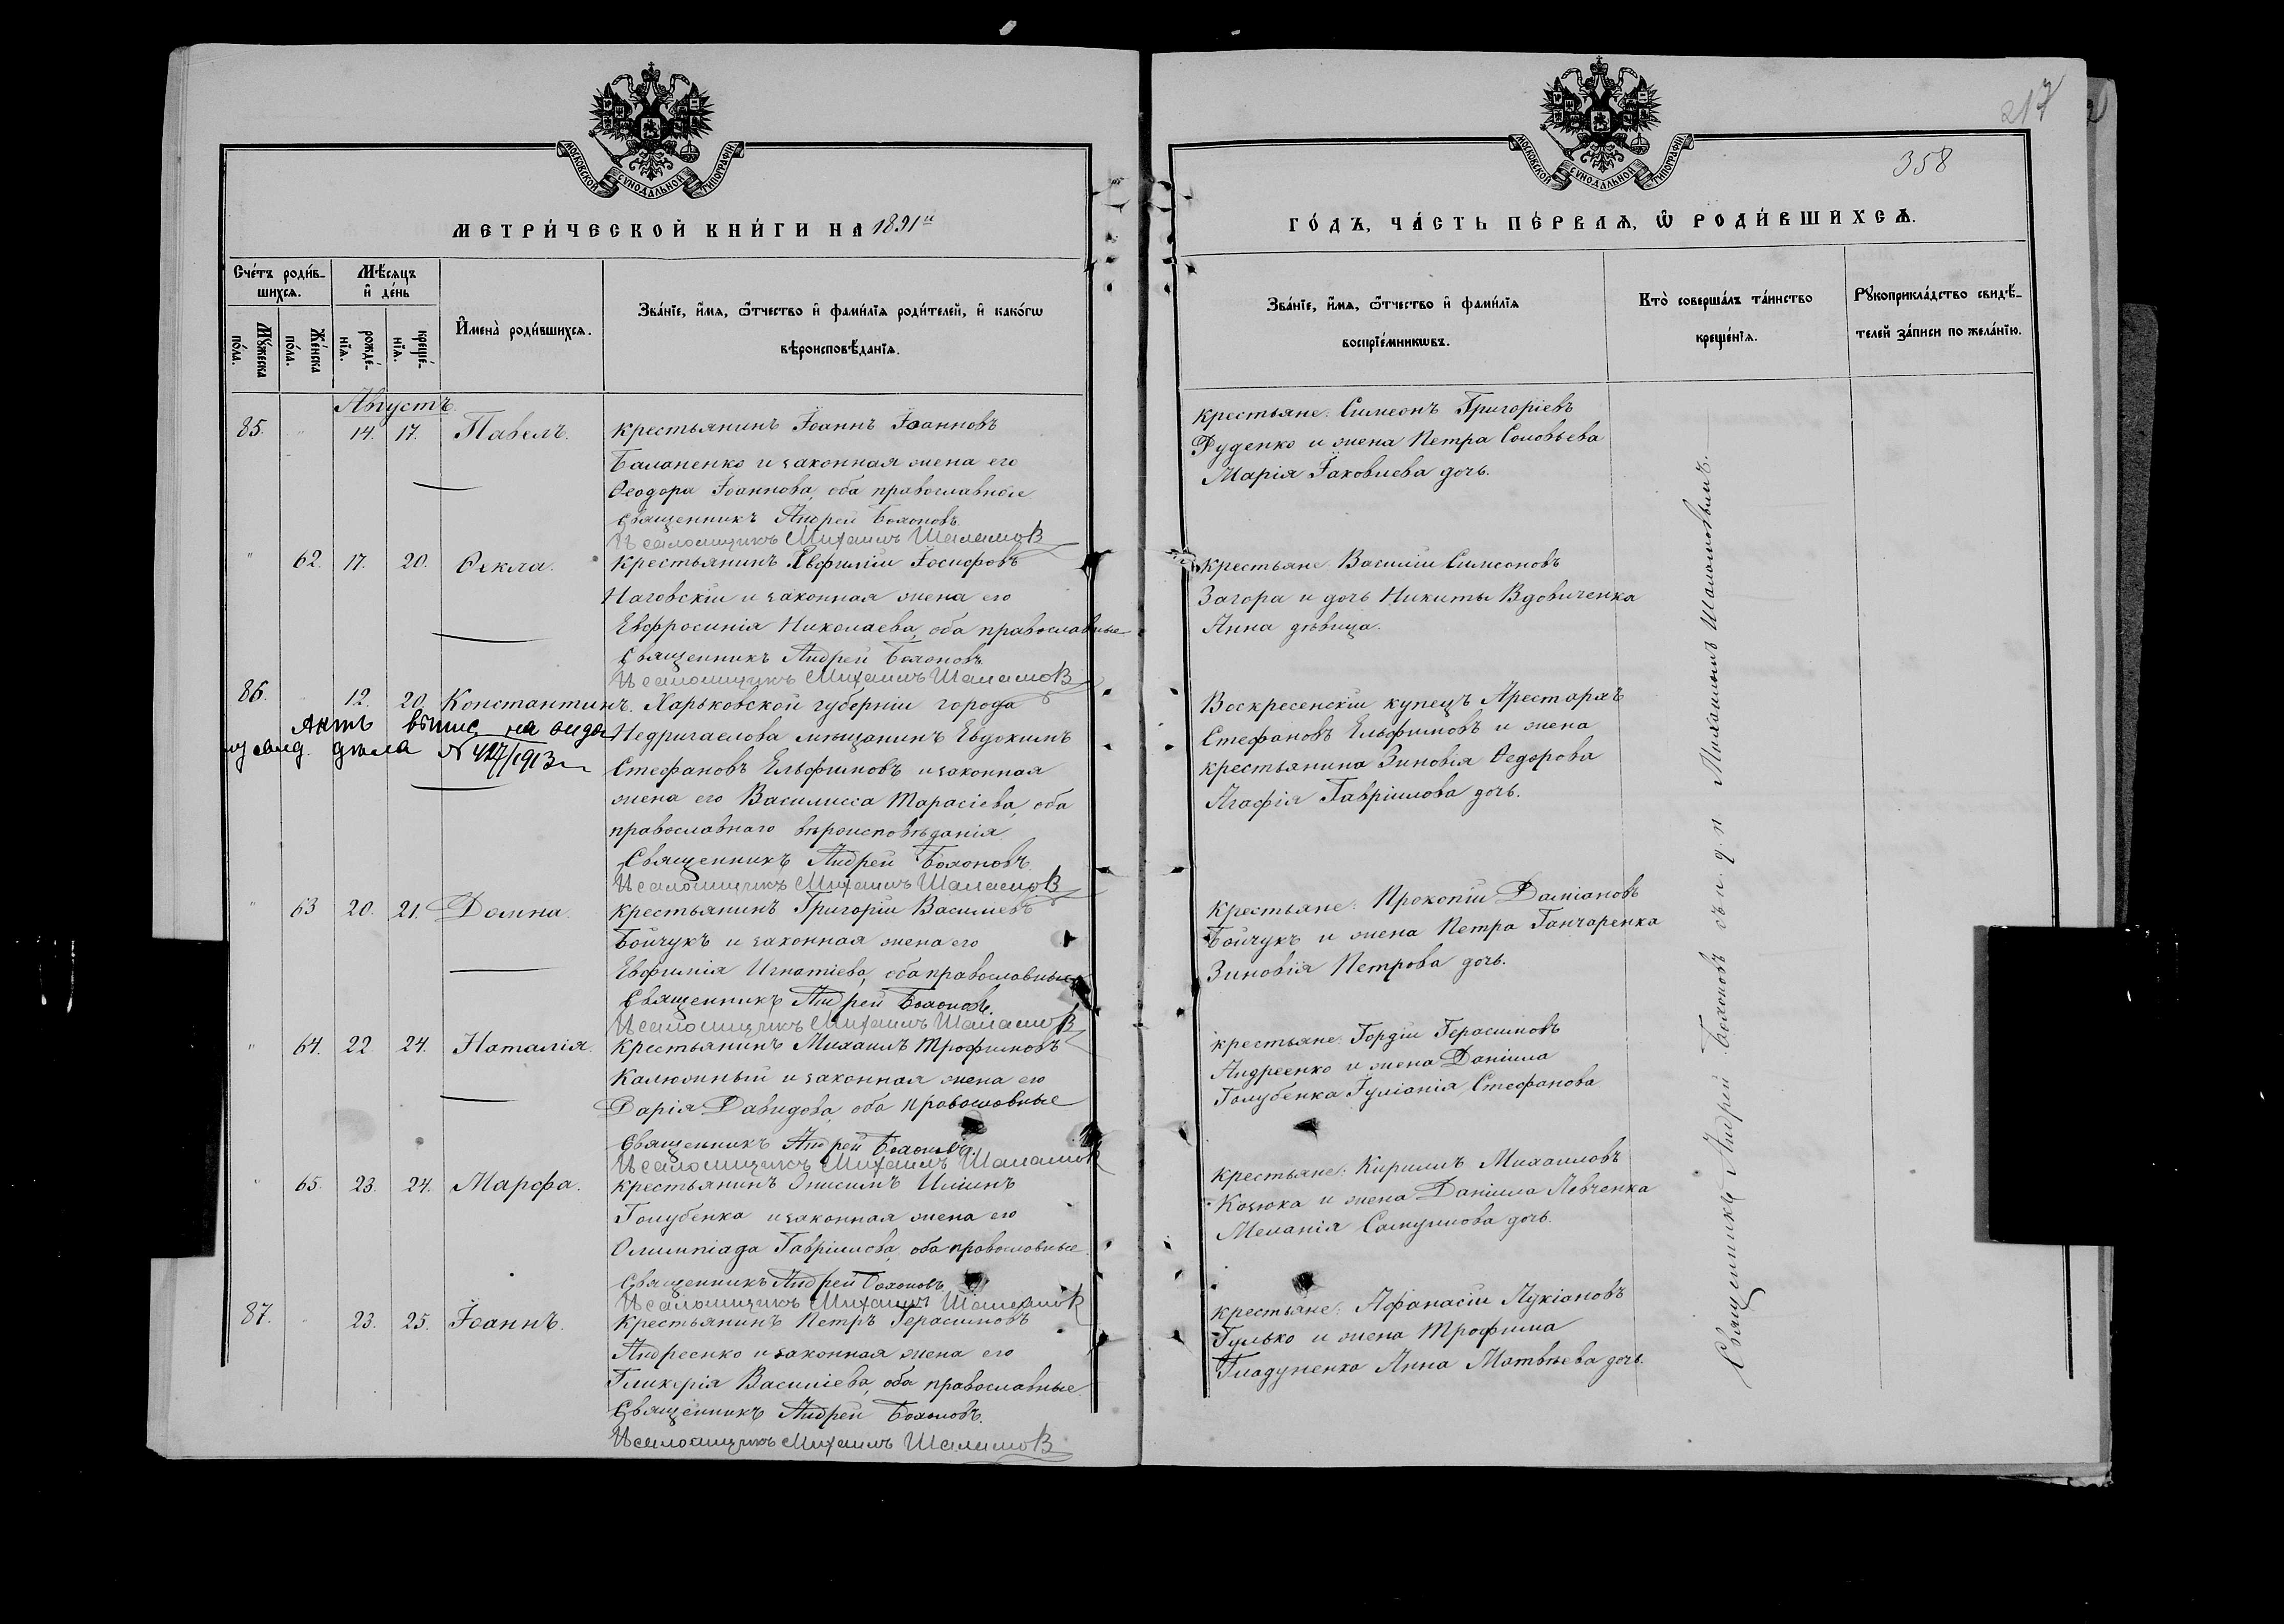 МОСКОВСКОЙ СѴНОДАЛЬНОЙ ТИПОГРАФІИ
МЕТРИ́ЧЕСКОЙ КНИ́ГИ НА 1891й
Сче́тъ роди́в-
шихсѧ.
Мѣ́сѧцъ
и҆ де́нь
Мꙋ́жеска
по́ла.
Же́нска
по́ла.
рожде́-
нїѧ.
креще́-
нїѧ.
И҆мена̀ роди́вшихсѧ.
Зва́нїе, и҆́мѧ, ѻ҆́тчество и҆ фами́лїѧ роди́телей, и҆ како́гѡ
вѣроисповѣ́данїѧ.
Августъ.
85. " 14. 17. Павелъ. Крестьянинъ Іоаннъ Іоанновъ
Баланенко и законная жена его
Ѳеодора Іоаннова, оба православные
Священникъ Андрей Бохоновъ
Псаломщикъ Михаилъ Шаламов
" 62. 17. 20. Ѳекла. Крестьянинъ Евфимій Іосифовъ
Наговскій и законная жена его
Евфросинія Николаева, оба православные
Священникъ Андрей Бохоновъ
Псаломщикъ Михаилъ Шаламов
86. " 12. 20. Константинъ. Харьковской губерніи города
Недригаелова мѣщанинъ Евдокимъ
Стефановъ Ельфимовъ и законная
жена его Василисса Тарасіева, оба
православнаго вѣроисповѣданія
Актъ выпис. на
дѣла № 427/1913
Священникъ Андрей Бохоновъ
Псаломщикъ Михаилъ Шаламов
" 63 20. 21. Домна. Крестьянинъ Григорій Василіевъ
Бойчукъ и законная жена его
Евфимія Игнатіева, оба православные
Священникъ Андрей Бохоновъ.
Псаломщикъ Михаилъ Шаламов
" 64. 22 24. Наталія. Крестьянинъ Михаилъ Трофимовъ
Калюжный и законная жена его
Дарія Давидова, оба православные
Священникъ Андрей Бохоновъ.
Псаломщикъ Михаилъ Шаламов
" 65. 23. 24. Марфа. Крестьянинъ Онисимъ Иліинъ
Голубенко и законная жена его
Олимпіада Гавріилова, оба православные
Священникъ Андрей Бохоновъ
Псаломщикъ Михаилъ Шаламов
87. " 23. 25. Іоаннъ. Крестьянинъ Петръ Герасимовъ
Андреенко и законная жена его
Гликерія Василіева, оба православные
Священникъ Андрей Бохоновъ.
Псаломщикъ Михаилъ Шаламов
217
358
МОСКОВСКОЙ СѴНОДАЛЬНОЙ ТИПОГРАФІИ
ГО́ДЪ, ЧА́СТЬ ПЕ́РВАѦ, Ѡ҆ РОДИ́ВШИХСѦ.
Зва́нїе, и҆́мѧ, ѻ҆́тчество и҆ фами́лїѧ
воспрїе́мникѡвъ.
Кто̀ соверша́лъ та́инство
креще́нїѧ.
Рꙋкоприкла́дство свидѣ́-
телей за́писи по жела́нїю.
Крестьяне: Симеонъ Григоріевъ
Руденко и жена Петра Соловьева
Марія Іаковлева дочь.
Крестьяне Василій Симеоновъ
Загора и дочь Никиты Вдовиченка
Анна дѣвица.
Воскресенскій купецъ Аристархъ
Стефановъ Ельфимовъ и жена
крестьянина Зиновія Ѳедорова
Агафія Гавріилова дочь.
Крестьяне: Прокопій Даміановъ
Бойчукъ и жена Петра Ганчаренка
Зиновія Петрова дочь.
Крестьяне: Гордій Герасимовъ
Андреенко и жена Даніила
Голубенка Іуліанія Стефанова
Крестьяне: Кириллъ Михаиловъ
Козюка и жена Даніила Левченка
Меланія Самуилова дочь.
Крестьяне: Афанасій Лукіановъ
Гулько и жена Трофима
Гладуненка Анна Матвѣева дочь.
Священникъ Андрей Бохоновъ съ и. д. п. Михаиломъ Шаламовымъ.